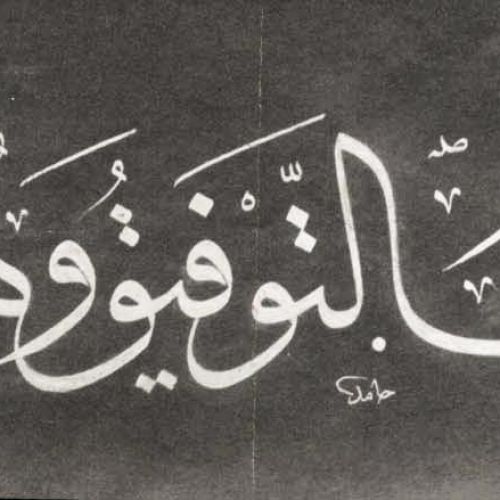 التّوْفيقُ و
حامد